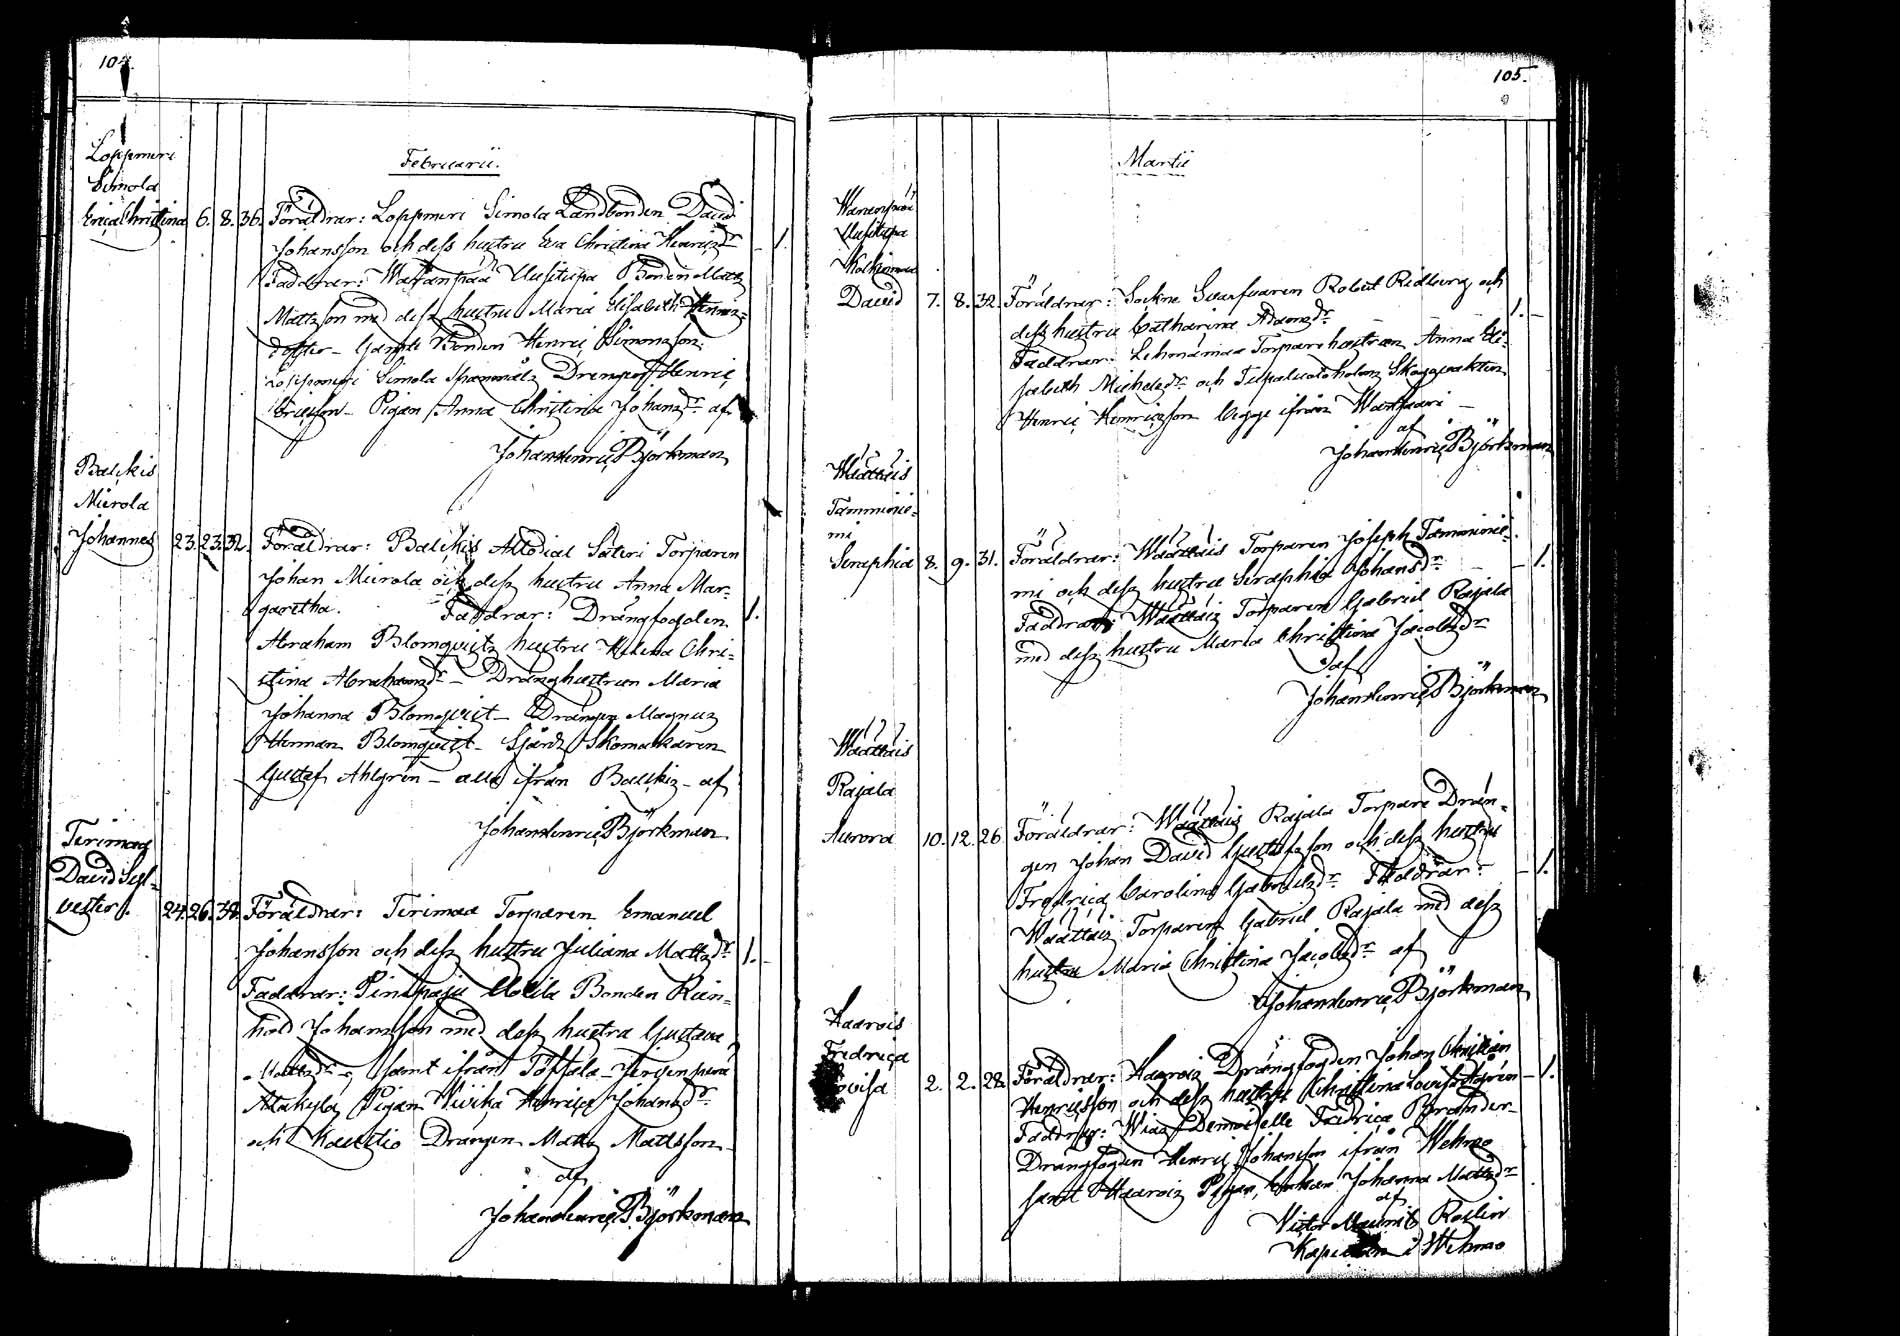 104.
Februarii.
Loppmeri
Simola
Erica Christina 6. 8. 36. Föräldrar: Loppmeri Simola Landbonden David
Johansson och dess hustru Eva Christina Henricsdr 1.
Faddrar: Waranpää Uusitupa Bonden Matts
Mattsson med dess hustru Maria Elisabeth Henrics=
dotter – Gamle Bonden Henric Simonsson.
Loppmeri Simola Drengen Henric
Ericsson – Pigan Anna Christina Johansdr af
Johan Henric Björkman
Balckis
Mierola
Johannes 23. 23. 32. Föräldrar: Balckis Allodial Säteri Torparen
Johan Mierola och dess hustru Anna Mar=
garetha. Faddrar: Drängfogden 1.
Abraham Blomqvists hustru Helena Chri=
stina Abrahamsdr – Dränghustrun Maria
Johanna Blomqvist – Drängen Magnus
Herman Blomqvist – Skomakaren
Gustaf Ahlgren – alla ifrån Balckis – af
Johan Henric Björkman
Terimaa
David Syl=
vester. 24. 26. Föräldrar: Terimaa Torparen Emanuel
Johansson och dess hustru Juliana Mattsdr 1.
Faddrar: Pinipaju Uotila Bonden Rein=
hold Johansson med dess hustru Gustava
Mattsdr – samt ifrån Töftsala
Alakylä Pigan Vivika Henrica Johansdr
och Kaustio Drängen Matts Mattsson
af
Johan Henric Björkman
105.
Martii
Waranpää
Uusitupa
David 7. 8. 32. Föräldrar: Sockne Svarfvaren Robert Ridberg och
dess hustru Catharina Adamsdr 1.
Faddrar: Lehmämaa Torparehustrun Anna Eli=
sabeth Michelsdr och Skogvaktaren
Henric Henricsson begge ifrån
af
Johan Henric Björkman
Waattais
Tamminie=
mi
Seraphia 8. 9. 31. Föräldrar: Waattais Torparen Joseph Tamminie=
mi och dess hustru Seraphia Johansdr 1.
Faddrar: Waattais Torparen Gabriel Rajala
med dess hustru Maria Christina Jacobsdr
af
Johan Henric Björkman
Waattais
Rajala
Aurora 10. 12. 26 Föräldrar: Waattais Rajala Torpare Drän=
gen Johan David Gustafsson och dess hustru
Fredrica Carolina Gabrielsdr Faddrar: 1.
Waattais Torparen Gabriel Rajala med dess
hustru Maria Christina Jacobsdr af
Johan Henric Björkman
Haarois
Fredrica
Lovisa 2. 2. 28. Föräldrar: Haarois Drängfogden Johan Christian
Henricsson och dess hustru Christina Lovisa 1.
Faddrar: Wias Demoiselle Fredrica Brander
Drängfogden Henric Johansson ifrån Wehmo
samt Haarois Pigan Johanna Mattsdr
af
Victor Mauritz Roslin
Kapellan i Wehmo